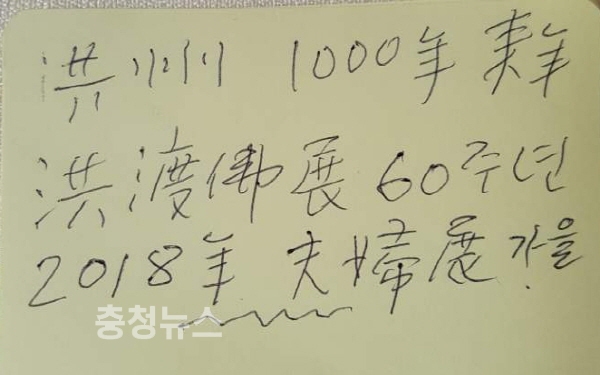 洪州 1000年 美年
洪渡佛展 60주년
2018年 夫婦展 가을
충청뉴스